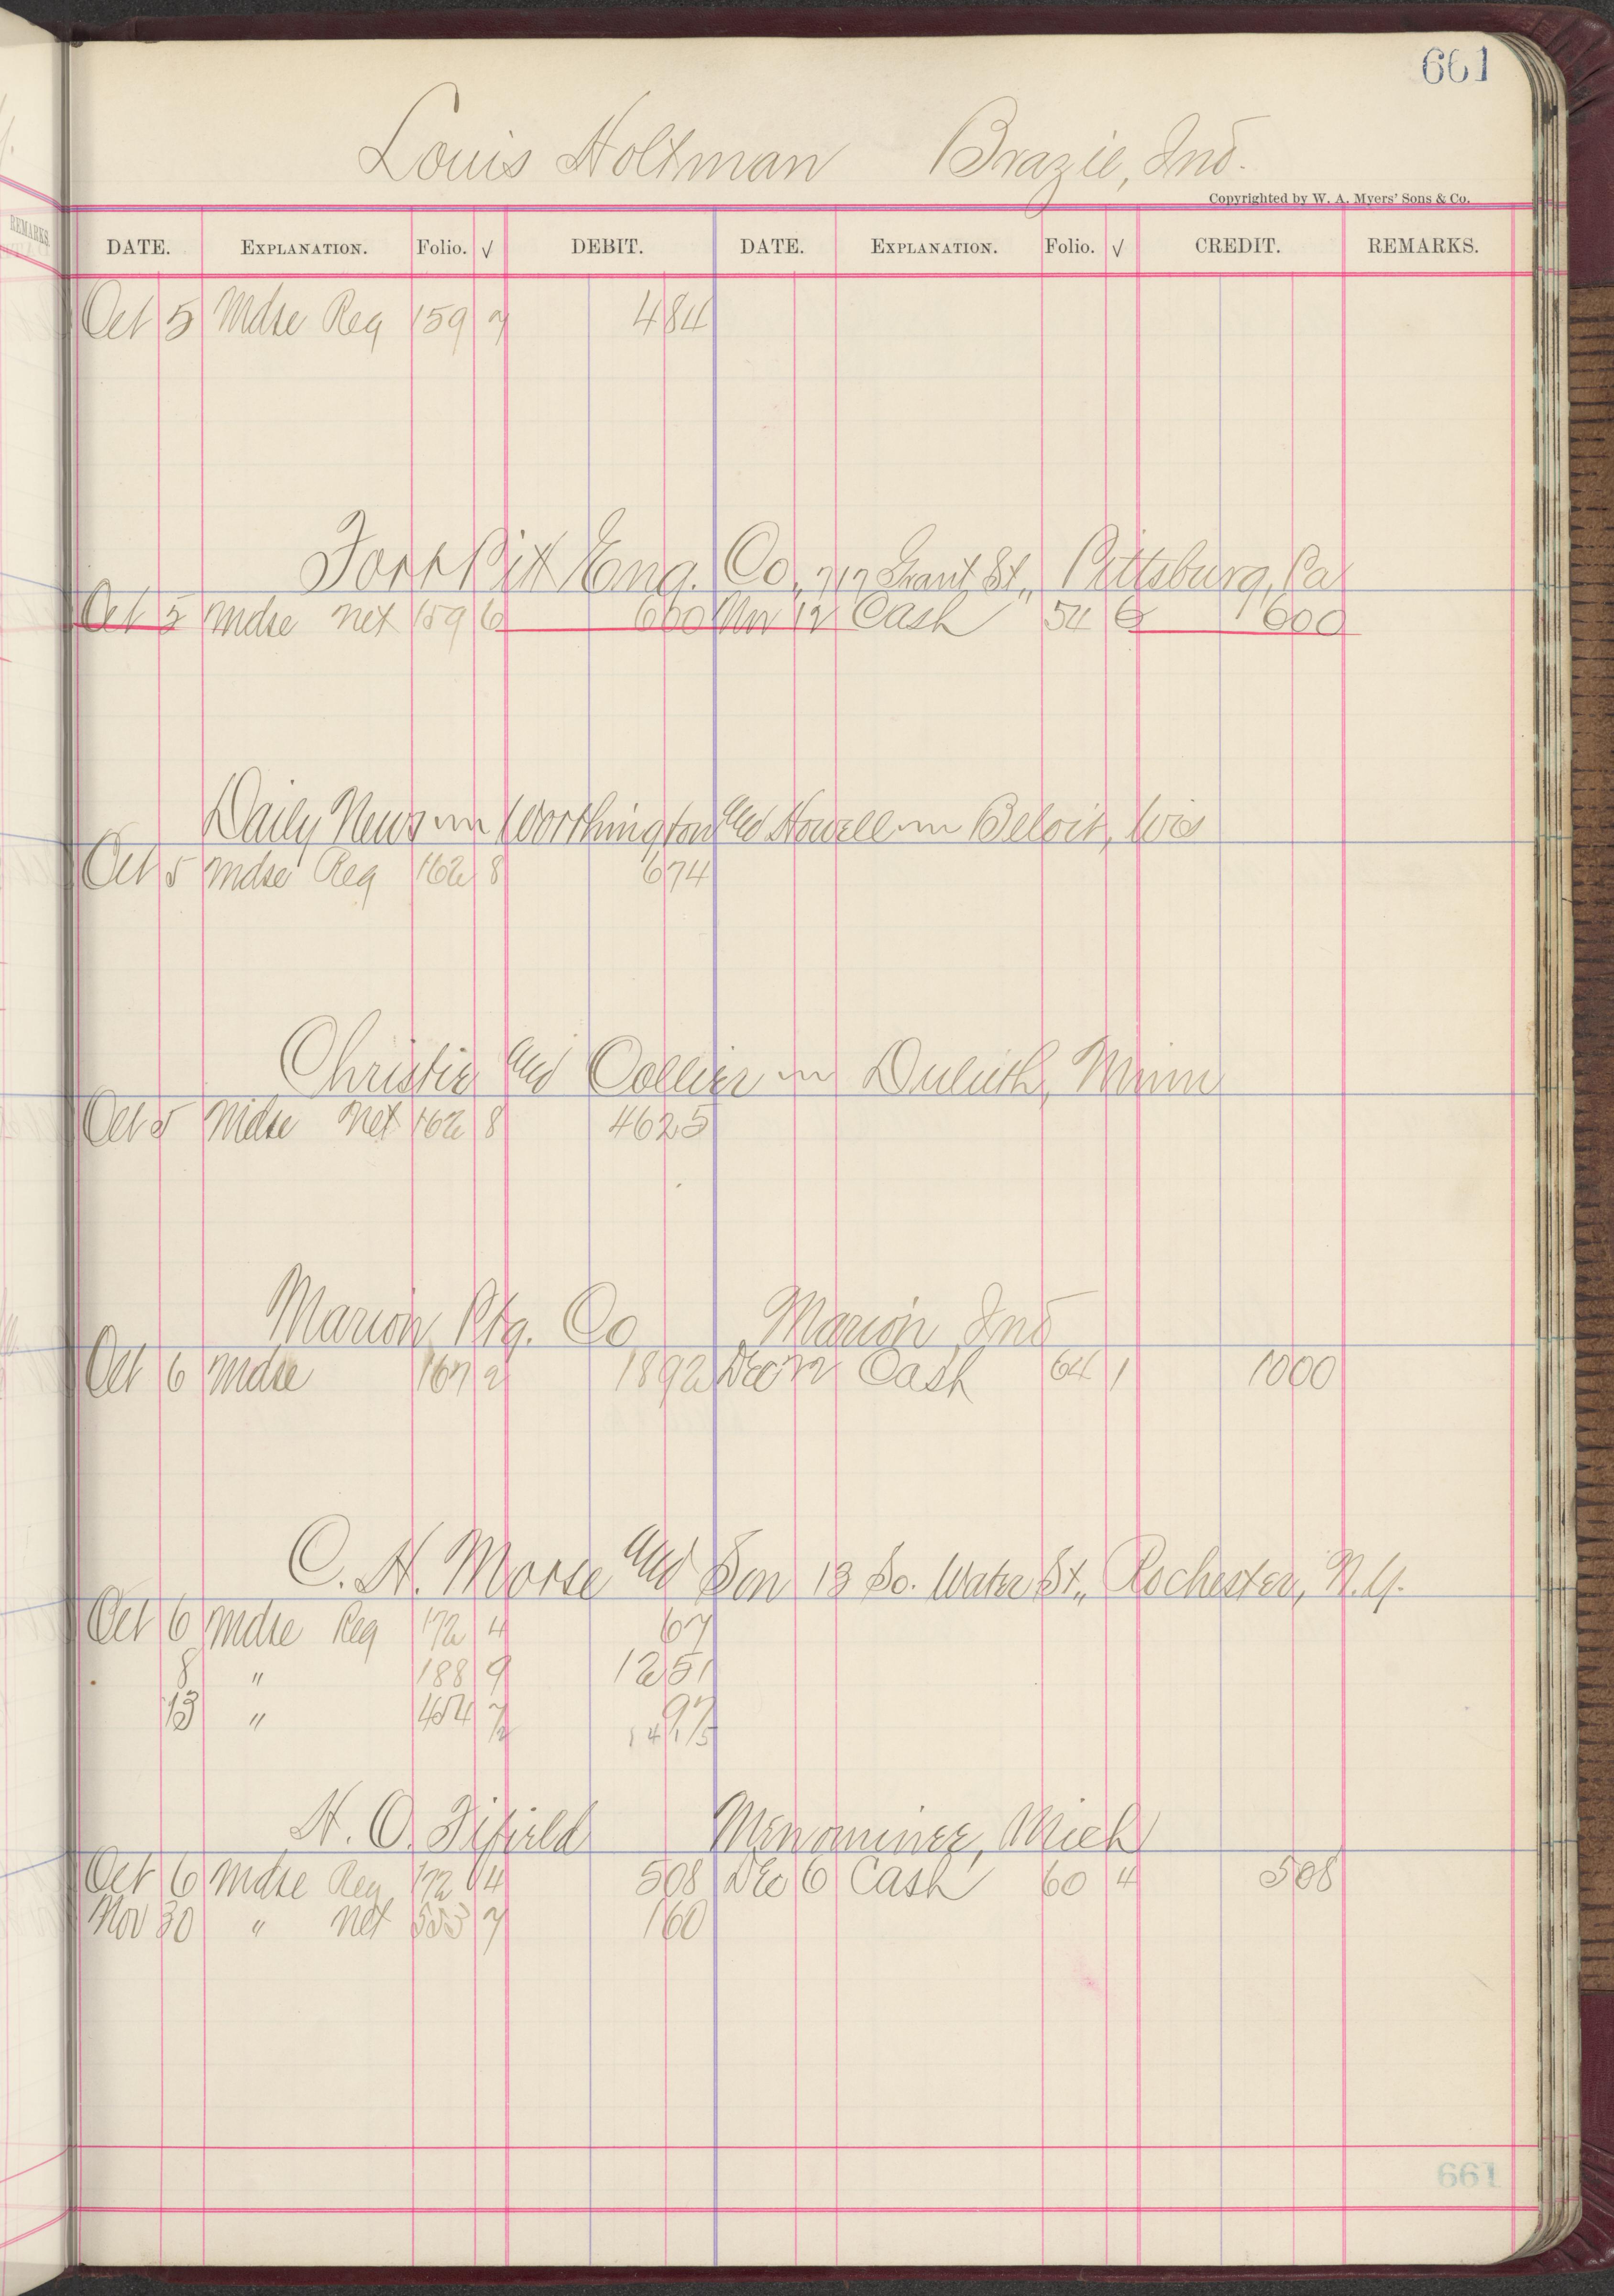 661
Louis Holtman Brazie, Ind.
Copyrighted by W. A. Myers' Sons & Co.
DATE. EXPLANATION. Folio. √ DEBIT. DATE. EXPLANATION. Folio. √ CREDIT. REMARKS.
Oct 5 Mdse Reg 159 7 4 84
Fort Pitt Eng. Co, 717 Grant St., Pittsburg, Pa
Oct 5 Mdse Net 159 6 6 00 Nov 12 Cash 54 6 6 00
Daily News Worthington and Howell Beloit, Wis
Oct 5 Mdse Reg 162 8 6 74
Christie and Collier Duluth, Minn
Oct 5 Mdse Net 162 8 46 25
Marion Ptg. Co Marion, Ind
Oct 6 Mdse 167 2 18 92 Dec Cash 64 1 10 00
C. H. Morse and Son 13 So. Water St., Rochester, N.Y.
Oct 6 Mdse Reg 172 4 67
8 " 188 9 12 51
13 " 7 97
14 15
H. O. Fifield Menominee, Mich
Oct 6 Mdse Reg 172 4 5 08 Dec 6 Cash 60 4 5 08
Nov 30 " Net 553 7 1 60
661